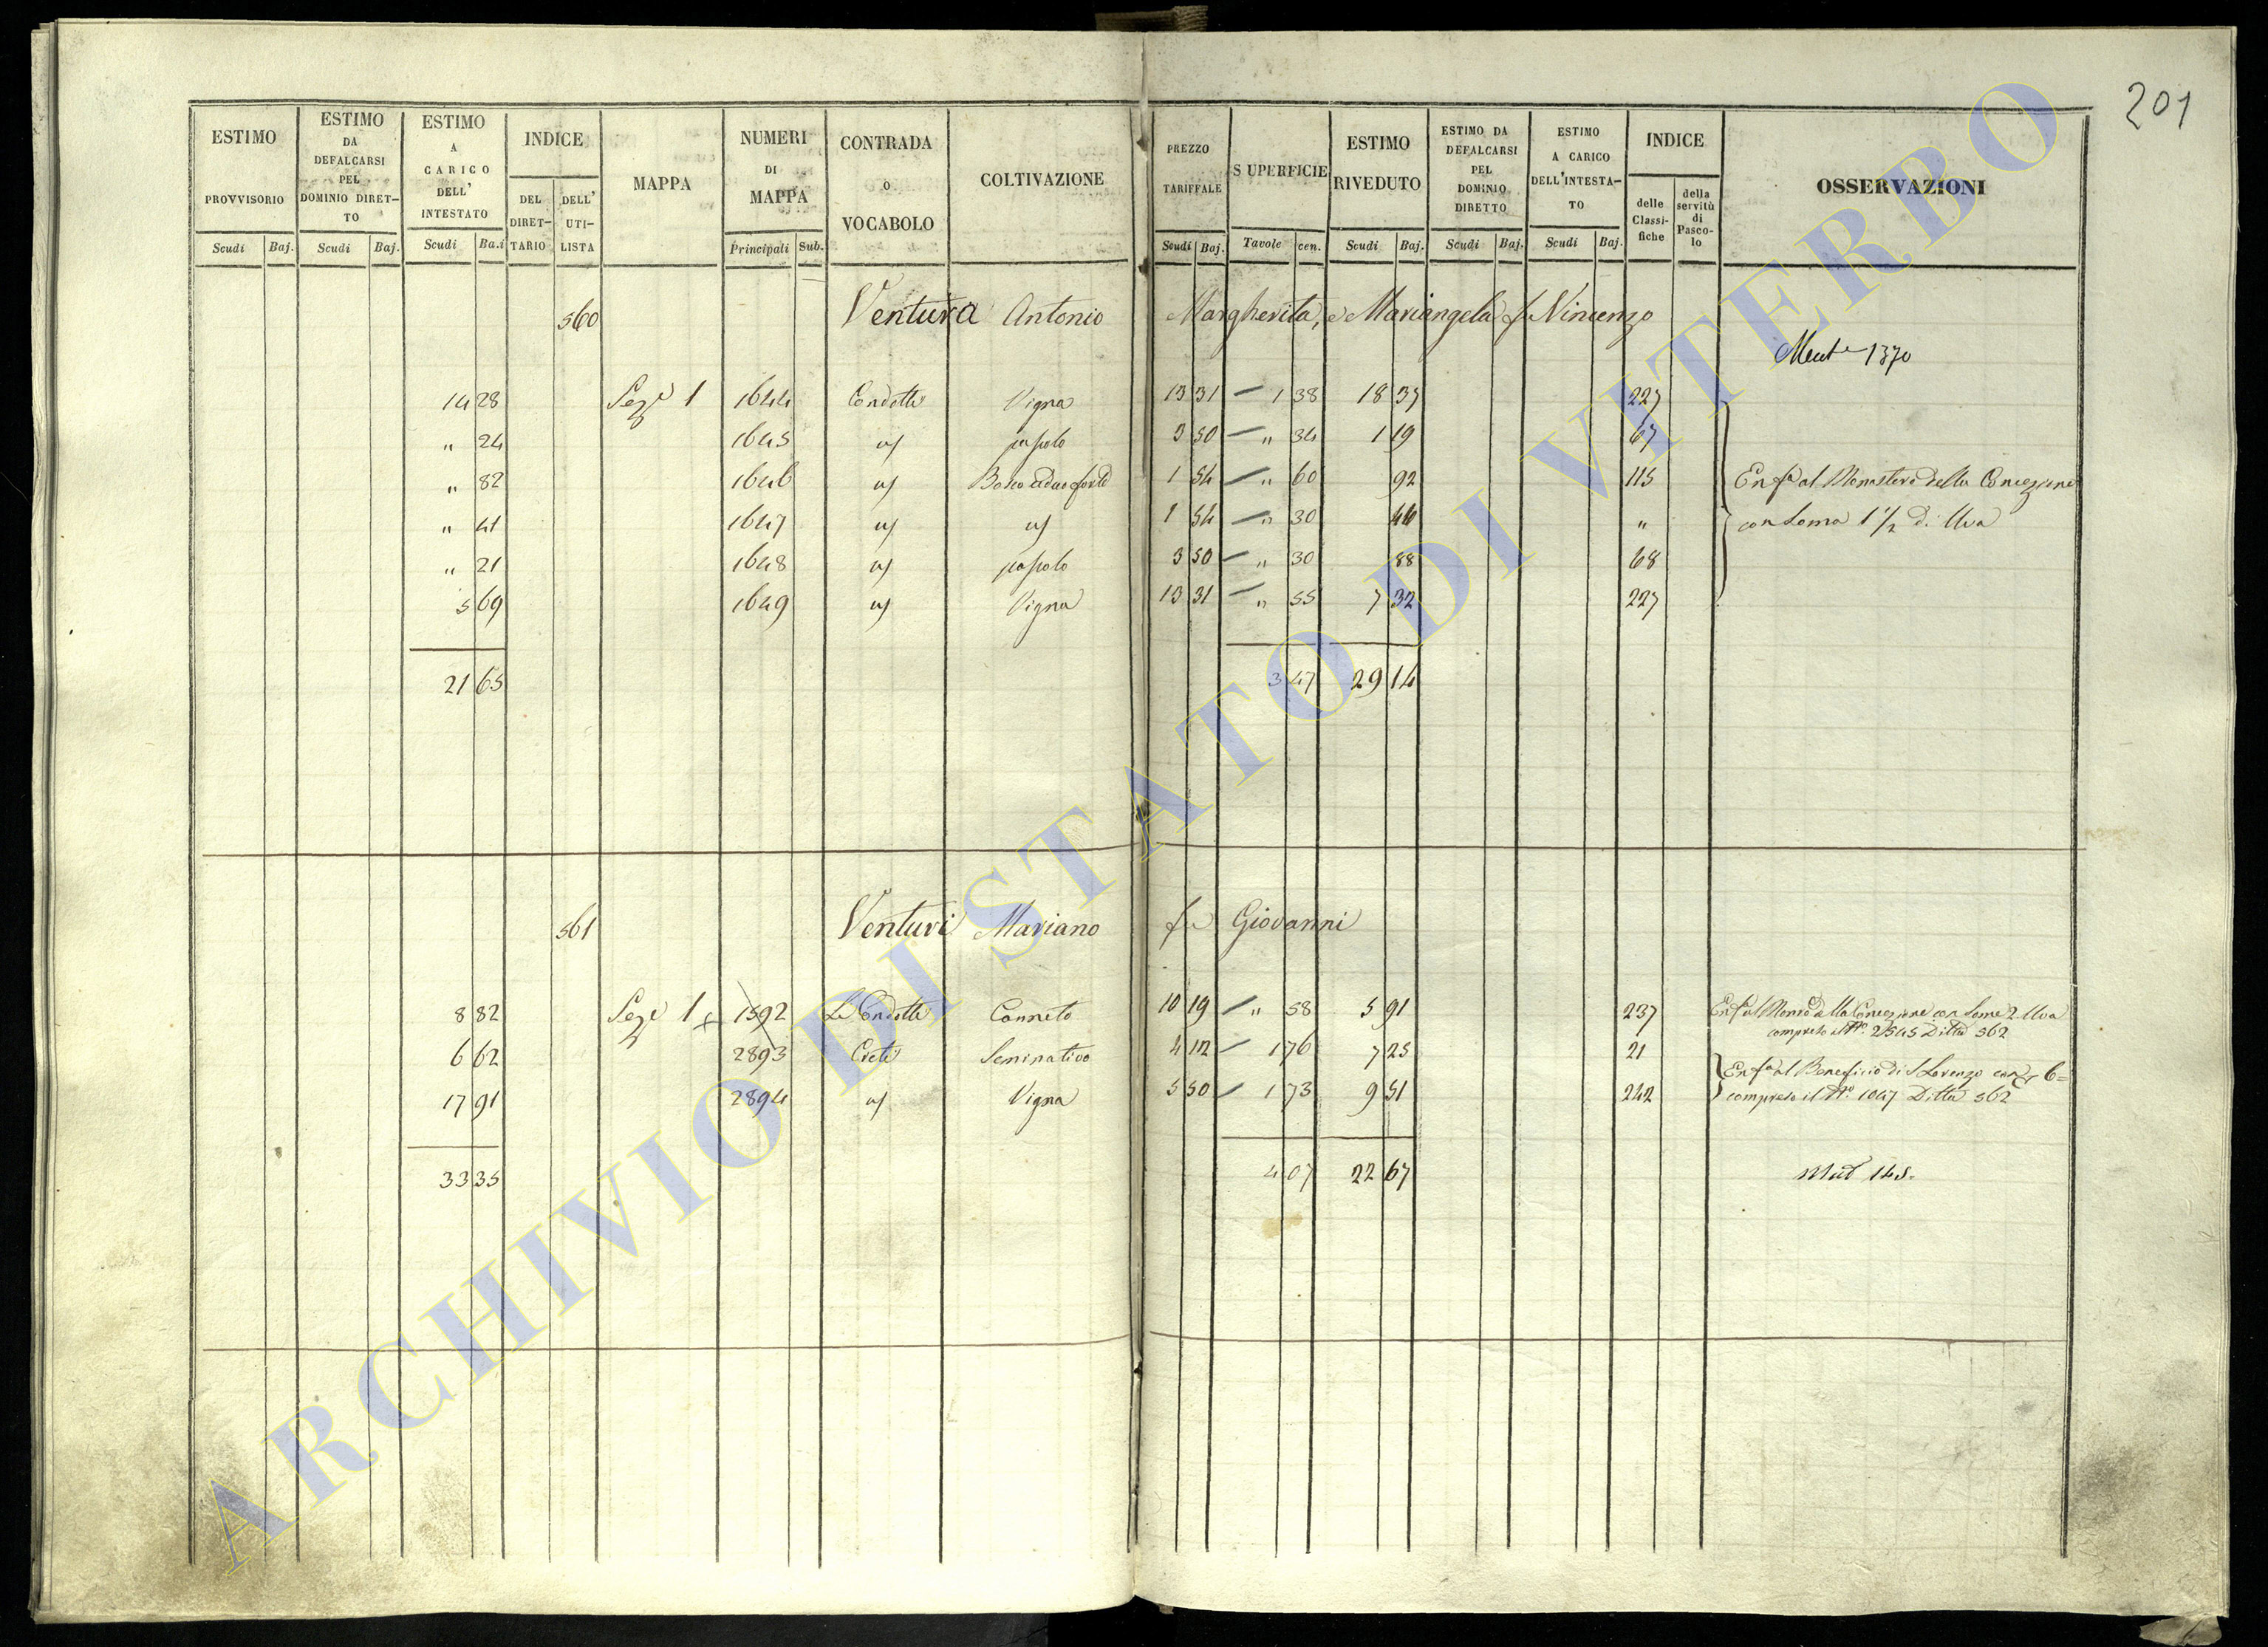 201
ESTIMO PROVVISORIO Scudi Baj.
ESTIMO DA DEFALCARSI PEL DOMINIO DIRETTO Scudi Baj.
ESTIMO A CARICO DELL' INTESTATO Scudi Ba.i
INDICE DEL DIRETTARIO DELL' UTILISTA
MAPPA
NUMERI DI MAPPA Principali Sub.
CONTRADA O VOCABOLO
COLTIVAZIONE
PREZZO TARIFFALE Scudi Baj.
SUPERFICIE Tavole cen.
ESTIMO RIVEDUTO Scudi Baj.
ESTIMO DA DEFALCARSI PEL DOMINIO DIRETTO Scudi Baj.
ESTIMO A CARICO DELL'INTESTATO Scudi Baj.
INDICE delle Classifiche della servitù di Pascolo
OSSERVAZIONI
560 Ventura Antonio Margherita, e Mariangela f Vincenzo
Mut.e 1370
14 28 Sez.e 1 1644 Condotte Vigna 13 31 — 1 38 18 37 227
" 24 1645 u/ pascolo 3 50 — " 34 1 19 67
" 82 1646 u/ Bosco ceduo forte 1 54 — " 60 92 115 Enf.a al Monastero della Concezione
" 41 1647 u/ u/ 1 54 — " 30 46 " con Soma 1 1/2 di Uva
" 21 1648 u/ pascolo 3 50 — " 30 88 68
5 69 1649 u/ Vigna 13 31 — " 55 7 32 227
21 65 3 47 29 14
561 Venturi Mariano fu Giovanni
8 82 Sez.e 1 1592 Le Condotte Canneto 10 19 — " 58 5 91 237 Enf.a al Monro della Concezione con Some 2 Uva
compreso il N.o 2545 Ditta 562
6 62 2893 Crete Seminativo 4 12 — 1 76 7 25 21
Enf.a al Beneficio di S Lorenzo con 6=
17 91 2894 u/ Vigna 5 50 — 1 73 9 51 242 compreso il N.o 1047 Ditta 562
33 35 4 07 22 67 Mut 145.
ARCHIVIO DI STATO DI VITERBO